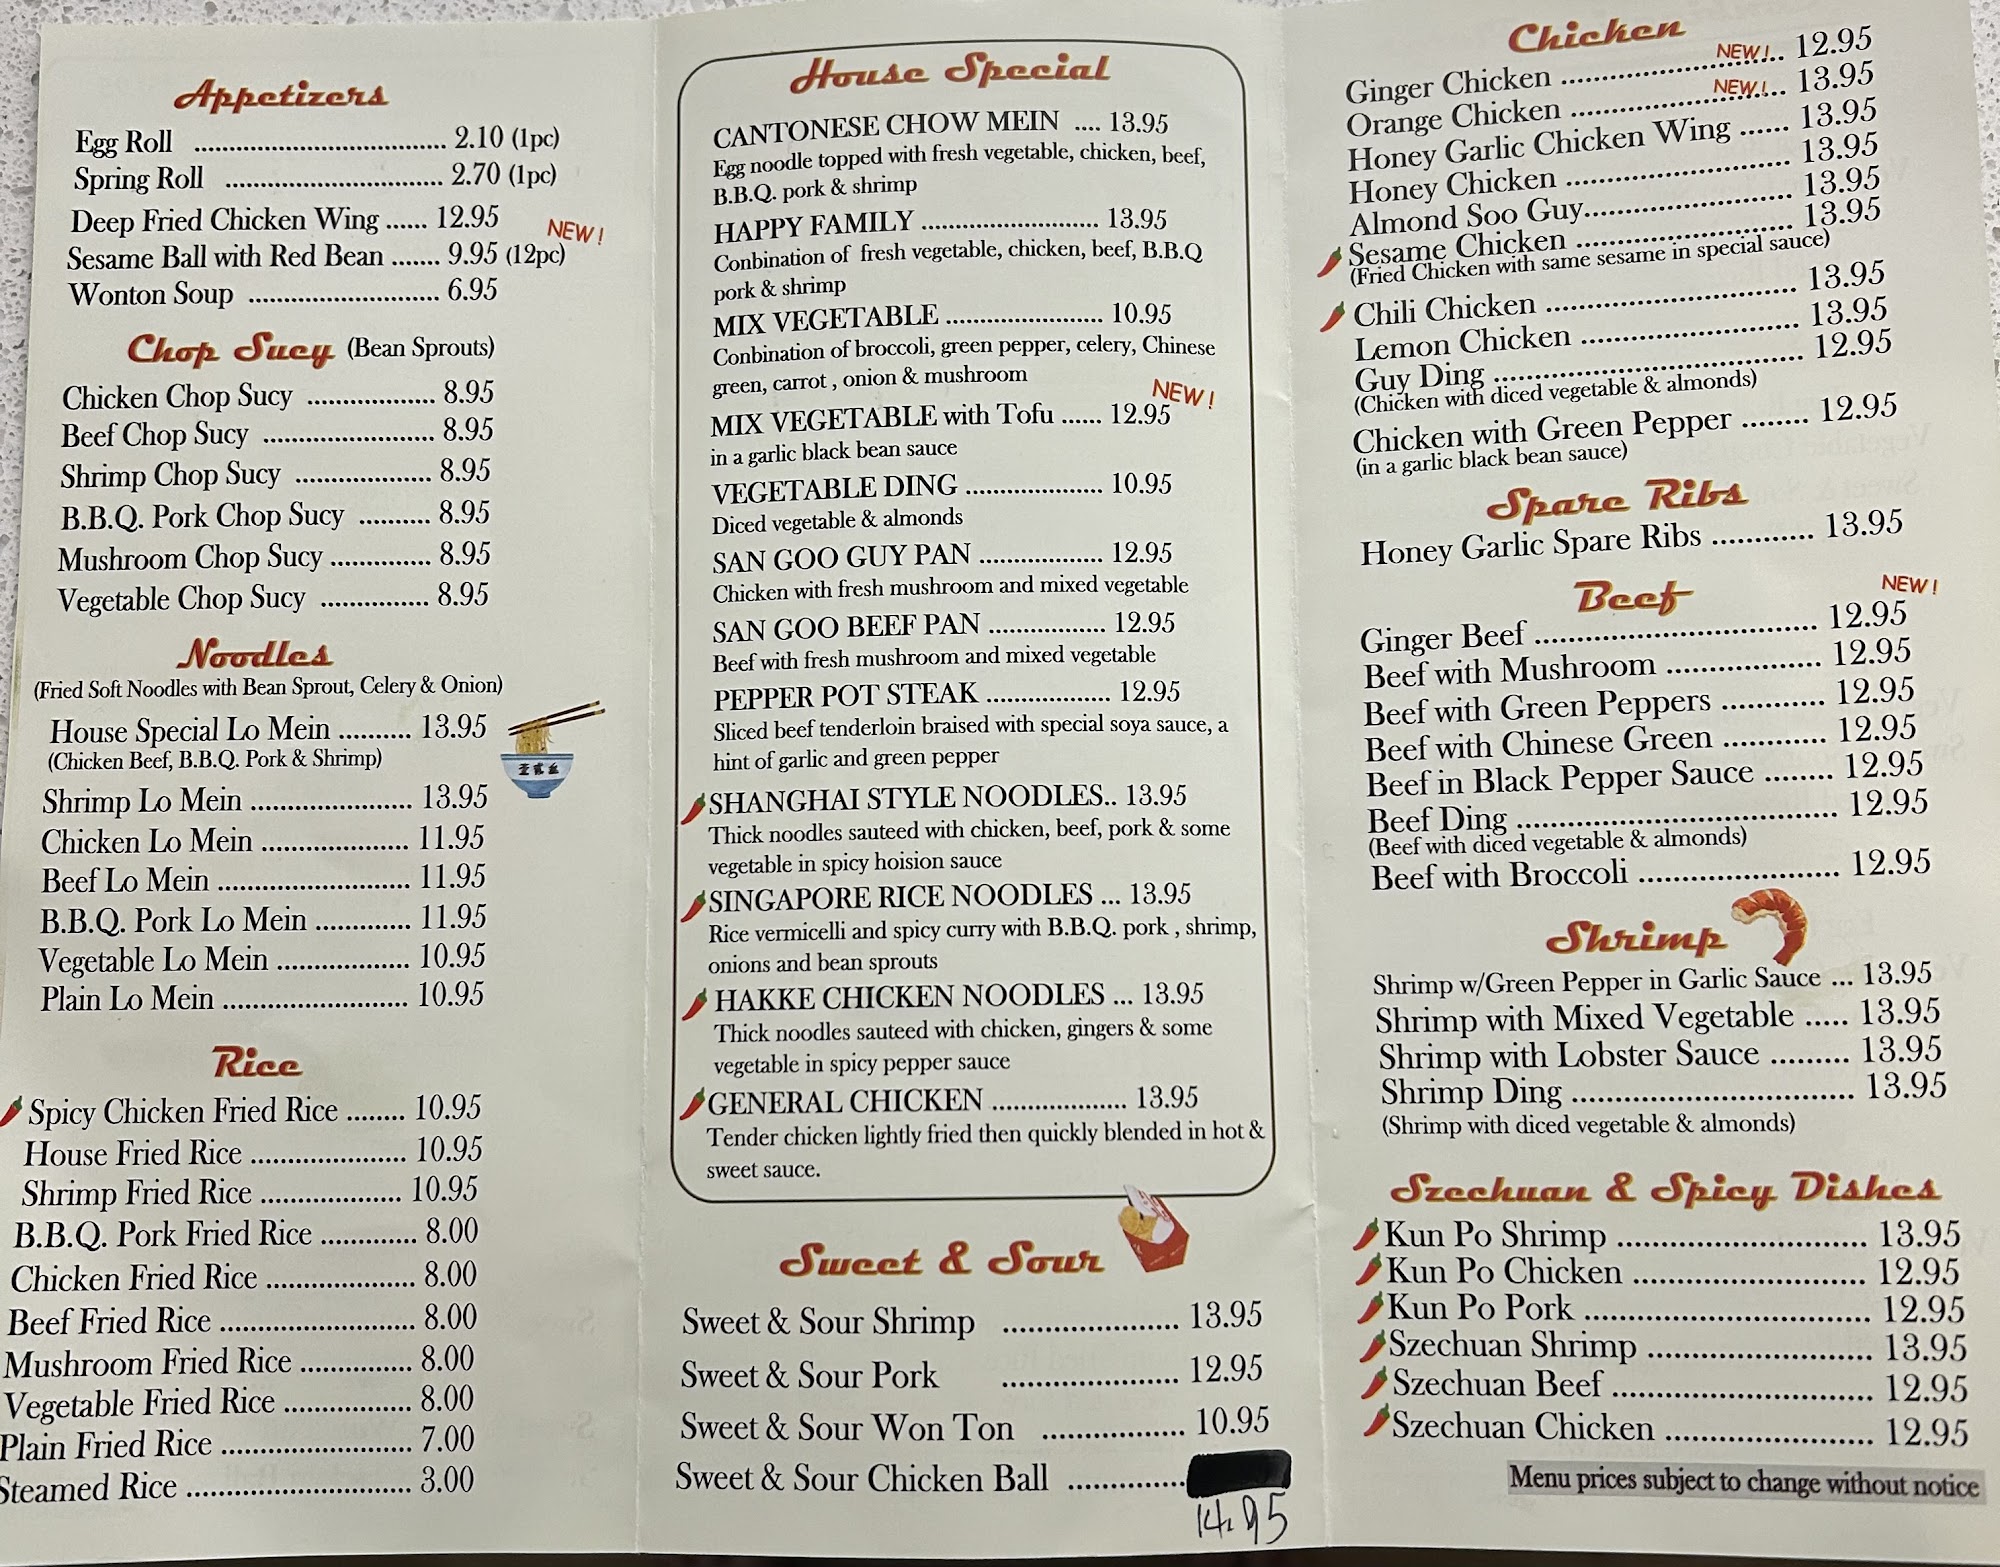 Appetizers
Egg Roll ................................... 2.10 (1pc)
Spring Roll .............................. 2.70 (1pc)
Deep Fried Chicken Wing ...... 12.95
NEW!
Sesame Ball with Red Bean ....... 9.95 (12pc)
Wonton Soup ........................... 6.95
Chop Sucy (Bean Sprouts)
Chicken Chop Sucy .................. 8.95
Beef Chop Sucy ........................ 8.95
Shrimp Chop Sucy ................... 8.95
B.B.Q. Pork Chop Sucy .......... 8.95
Mushroom Chop Sucy .............. 8.95
Vegetable Chop Sucy ............... 8.95
Noodles
(Fried Soft Noodles with Bean Sprout, Celery & Onion)
House Special Lo Mein .......... 13.95
(Chicken Beef, B.B.Q. Pork & Shrimp)
Shrimp Lo Mein ....................... 13.95
Chicken Lo Mein ..................... 11.95
Beef Lo Mein ........................... 11.95
B.B.Q. Pork Lo Mein ............. 11.95
Vegetable Lo Mein ................... 10.95
Plain Lo Mein .......................... 10.95
Rice
Spicy Chicken Fried Rice ........ 10.95
House Fried Rice ...................... 10.95
Shrimp Fried Rice .................... 10.95
B.B.Q. Pork Fried Rice ............. 8.00
Chicken Fried Rice ..................... 8.00
Beef Fried Rice ............................ 8.00
Mushroom Fried Rice ................ 8.00
Vegetable Fried Rice .................. 8.00
Plain Fried Rice ........................... 7.00
Steamed Rice ................................ 3.00
House Special
CANTONESE CHOW MEIN .... 13.95
Egg noodle topped with fresh vegetable, chicken, beef,
B.B.Q. pork & shrimp
HAPPY FAMILY ......................... 13.95
Conbination of fresh vegetable, chicken, beef, B.B.Q
pork & shrimp
MIX VEGETABLE ...................... 10.95
Conbination of broccoli, green pepper, celery, Chinese
green, carrot , onion & mushroom
NEW!
MIX VEGETABLE with Tofu ...... 12.95
in a garlic black bean sauce
VEGETABLE DING .................... 10.95
Diced vegetable & almonds
SAN GOO GUY PAN .................. 12.95
Chicken with fresh mushroom and mixed vegetable
SAN GOO BEEF PAN ................. 12.95
Beef with fresh mushroom and mixed vegetable
PEPPER POT STEAK .................. 12.95
Sliced beef tenderloin braised with special soya sauce, a
hint of garlic and green pepper
SHANGHAI STYLE NOODLES.. 13.95
Thick noodles sauteed with chicken, beef, pork & some
vegetable in spicy hoision sauce
SINGAPORE RICE NOODLES ... 13.95
Rice vermicelli and spicy curry with B.B.Q. pork , shrimp,
onions and bean sprouts
HAKKE CHICKEN NOODLES ... 13.95
Thick noodles sauteed with chicken, gingers & some
vegetable in spicy pepper sauce
GENERAL CHICKEN .................... 13.95
Tender chicken lightly fried then quickly blended in hot &
sweet sauce.
Sweet & Sour
Sweet & Sour Shrimp ..................... 13.95
Sweet & Sour Pork ..................... 12.95
Sweet & Sour Won Ton ................. 10.95
Sweet & Sour Chicken Ball ..............
14.95
Chicken
Ginger Chicken .......................... NEW! 12.95
Orange Chicken ......................... NEW! 13.95
Honey Garlic Chicken Wing ...... 13.95
Honey Chicken ........................... 13.95
Almond Soo Guy......................... 13.95
Sesame Chicken ......................... 13.95
(Fried Chicken with same sesame in special sauce)
Chili Chicken .............................. 13.95
Lemon Chicken .......................... 13.95
Guy Ding .................................... 12.95
(Chicken with diced vegetable & almonds)
Chicken with Green Pepper ........ 12.95
(in a garlic black bean sauce)
Spare Ribs
Honey Garlic Spare Ribs ............ 13.95
Beef
NEW!
Ginger Beef ................................. 12.95
Beef with Mushroom .................. 12.95
Beef with Green Peppers ............ 12.95
Beef with Chinese Green ............ 12.95
Beef in Black Pepper Sauce ........ 12.95
Beef Ding ..................................... 12.95
(Beef with diced vegetable & almonds)
Beef with Broccoli ....................... 12.95
Shrimp
Shrimp w/Green Pepper in Garlic Sauce ... 13.95
Shrimp with Mixed Vegetable ..... 13.95
Shrimp with Lobster Sauce ......... 13.95
Shrimp Ding ................................. 13.95
(Shrimp with diced vegetable & almonds)
Szechuan & Spicy Dishes
Kun Po Shrimp ............................. 13.95
Kun Po Chicken ........................... 12.95
Kun Po Pork ................................. 12.95
Szechuan Shrimp .......................... 13.95
Szechuan Beef .............................. 12.95
Szechuan Chicken ........................ 12.95
Menu prices subject to change without notice